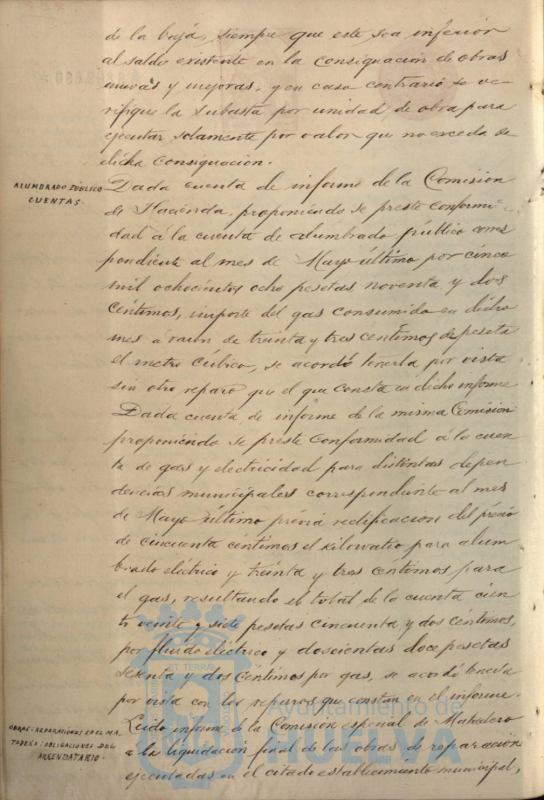 de la baja, siempre que este sea inferior
al saldo existente en la consignacion de obras
nuevas y mejoras, y en caso contrario se ve-
rifique la subasta por unidad de obra para
ejecutar solamente por valor que no exceda de
dicha consignacion.
ALUMBRADO PUBLICO
CUENTAS.
Dada cuenta de informe de la Comision
de Hacienda, proponiendo se preste conformi-
dad á la cuenta de alumbrado público corres
pondiente al mes de Mayo último por cinco
mil ochocientos ocho pesetas, noventa y dos
céntimos, importe del gas consumido en dicho
mes á razon de treinta y tres centimos de peseta
el metro cúbico, se acordó tenerla por vista
sin otro reparo que el que consta en dicho informe
Dada cuenta de informe de la misma Comision
proponiendo se preste conformidad á la cuen
ta de gas y electricidad para distintas depen
dencias municipales correspondiente al mes
de Mayo último prévia rectificacion del précio
de cincuenta céntimos el kilowatio para alum
brado eléctrico y treinta y tres centimos para
el gas, resultando el total de la cuenta cien
to veinte y siete pesetas cincuenta y dos céntimos,
por fluido eléctrico y doscientas doce pesetas
sesenta y dos céntimos por gas, se acordó tenerla
por vista con los reparos que constan en el informe.
OBRAS: REPARACIONES EN EL MA-
TADERO: OBLIGACIONES DEL
ARRENDATARIO.
Leido informe de la Comision especial de Matadero
á la liquidacion final de las obras de reparacion
ejecutadas en el citado establecimiento municipal,
ET TERRÆ
Ayuntamiento de
HUELVA